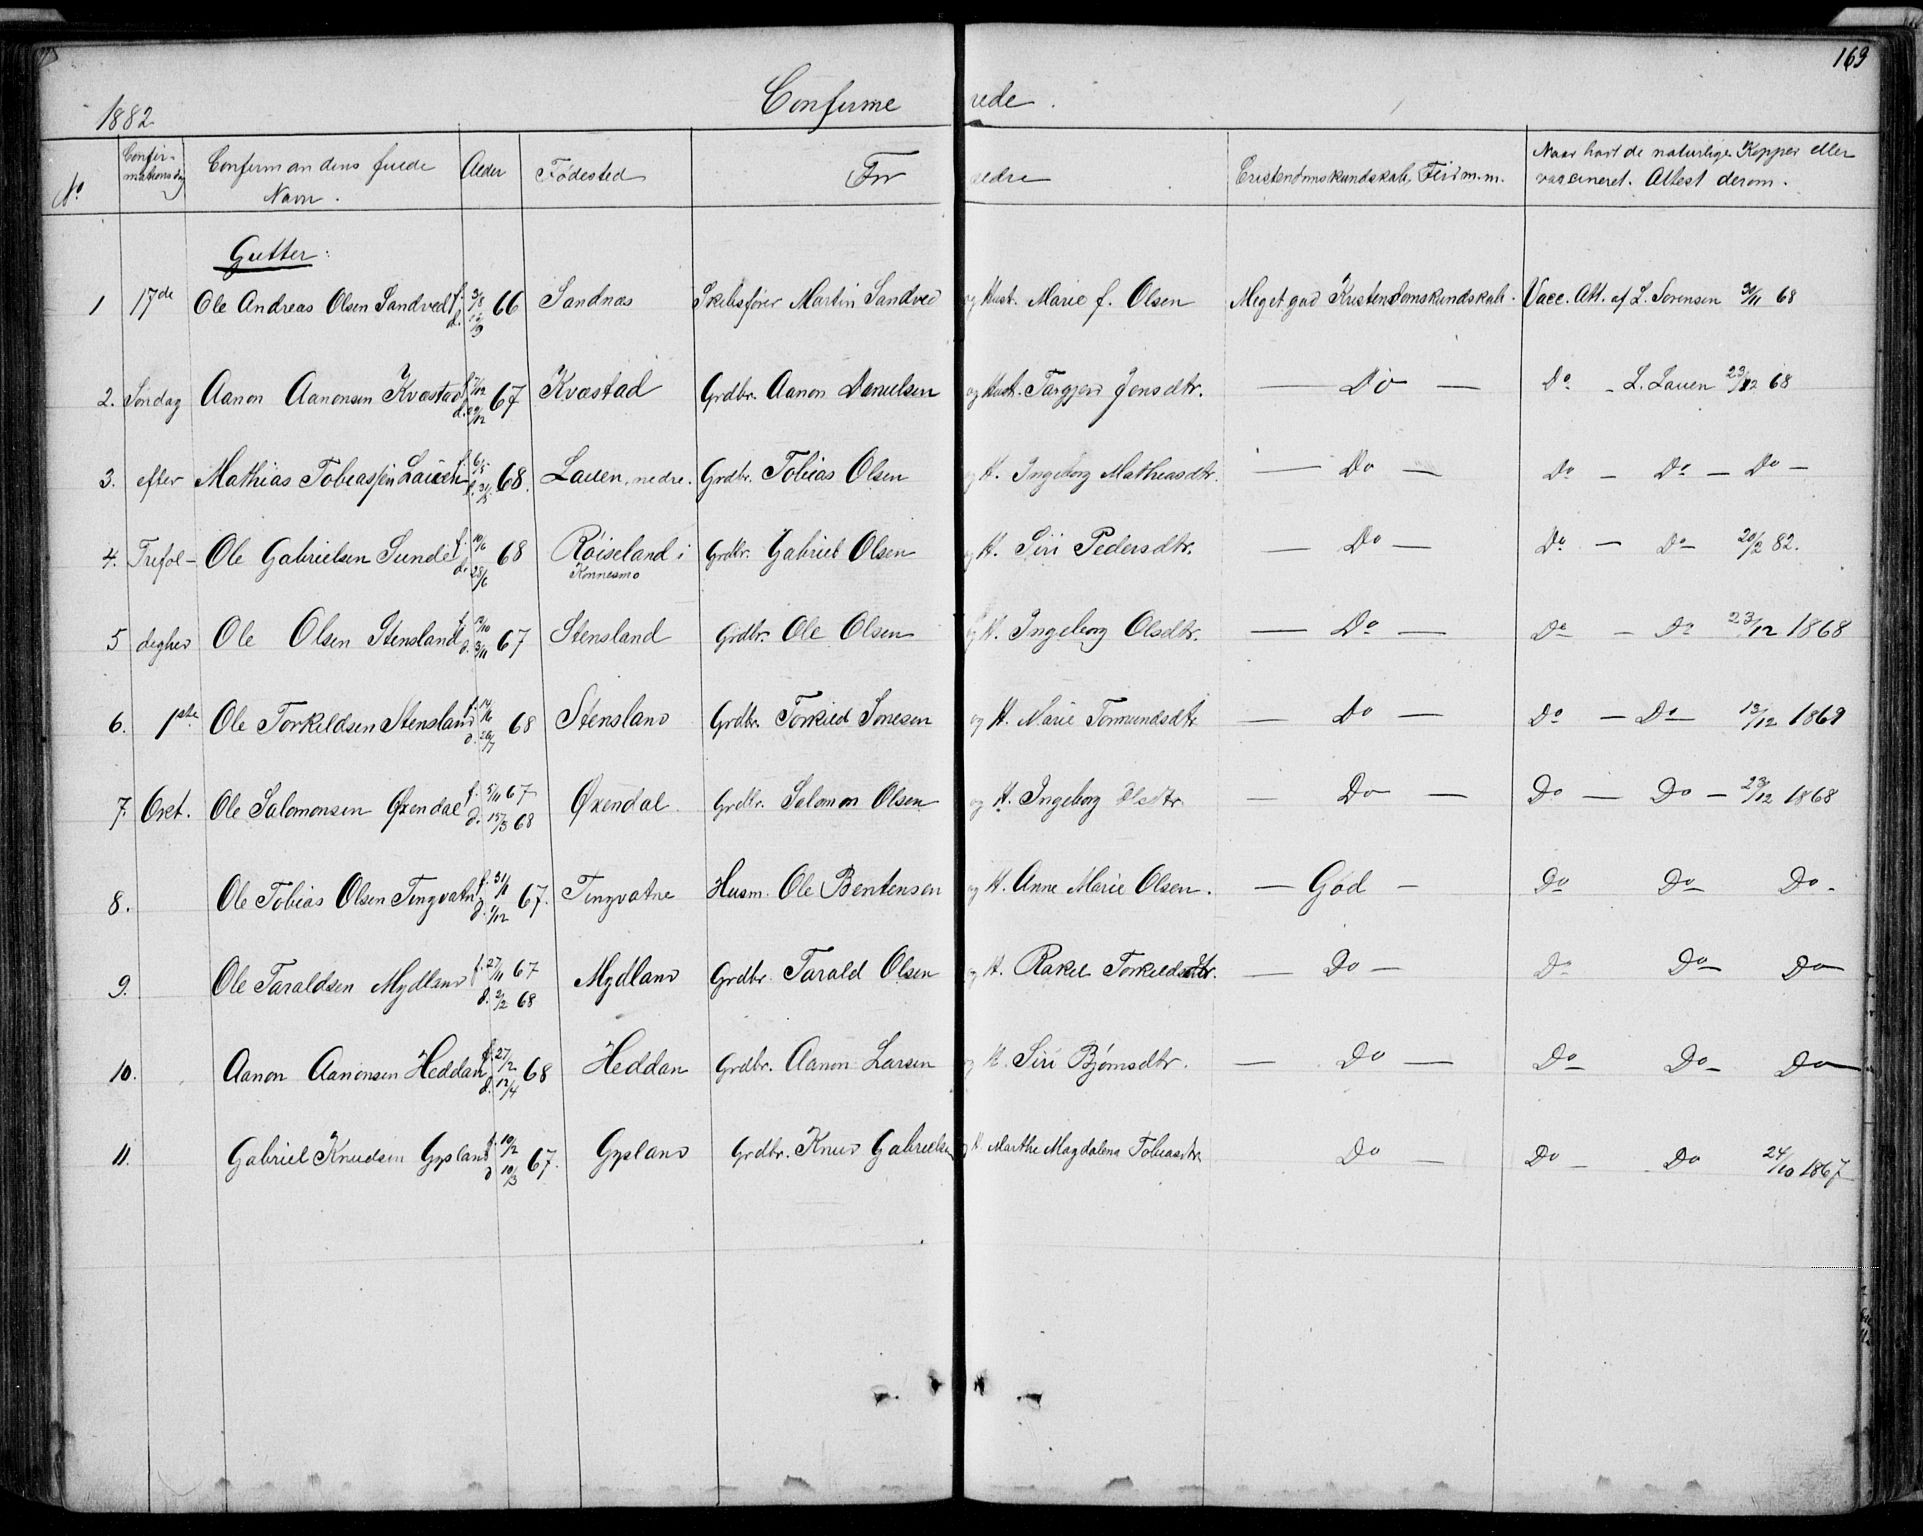 169
1882
Confirme rede.
No
Confirmationsdag
Confirmandens fulde Navn.
Alder
Fødested
For ældre
Cristendomskundskab, Flid m.m.
Naar havt de naturlige Kopper eller vaccineret. Attest derom.
Gutter:
1 17de Ole Andreas Olsen Sandved f. 3/8 66 Sandnæs Skibsfører Martin Sandved og Hust. Marie f. Olsen Meget god Kristendomskundskab. Vacc. Att. af L. Sørensen /11 68
2. Søndag Aanon Aanonsen Kvæstad 67 Kvæstad Grdbr. Aanon Danielsen og Hust. Targjerd Jensdtr. — Do — Do - L. Lauen 23/12 68
3. efter Mathias Tobiassen Lauen f. 6/5 d. 31/5 68. Lauen, nedre. Grdbr. Tobias Olsen og H. Ingeborg Mathiasdtr. — Do — Do - Do - Do -
4. Trefol- Ole Gabrielsen Sunde f. 10/6 d. 28/6 68 Røiseland i Konnesmo Grdbr. Gabriel Olsen og H. Siri Pedersdtr. — Do — Do - Do 20/2 82.
5 digher Ole Olsen Stensland f. 12/10 d. 3/11 67 Stensland Grdbr. Ole Olsen og H. Ingeborg Olsdtr. — Do — Do - Do 23/12 1868
6. 1ste Ole Torkildsen Stensland 68 Stensland Grdbr. Torkild Sønesen og H. Marie Tormundsdtr — Do — Do - Do 13/12 1869
7. Oct. Ole Salomonsen Øxendal f. 5/11 67 d. 15/3 68 Øxendal Grdbr. Salomon Olsen og H. Ingeborg Olsdtr. — Do — Do - Do - 23/12 1868
8. Ole Tobias Olsen Tingvatn f. 31/ d. 1/12 67. Tingvatne Husm. Ole Bentensen og H. Anne Marie Olsen. — God — Do Do Do -
9. Ole Taraldsen Mydland f. 27/11 67 d. 2/2 68 Mydland Grdbr. Tarald Olsen og H. Rakel Torkildsdtr. — Do — Do Do Do
10. Aanon Aanonsen Heddan f. 27/2 d. 12/4 68 Heddan Grdbr. Aanon Larsen og H. Siri Bjørnsdtr. — Do — Do Do Do
11. Gabriel Knudsen Gysland f. 10/2 d. 10/3 67. Gysland Grdbr. Knud Gabrielsen og H. Marthe Magdalena Tobiasdtr. Do — Do - Do 24/10 1867